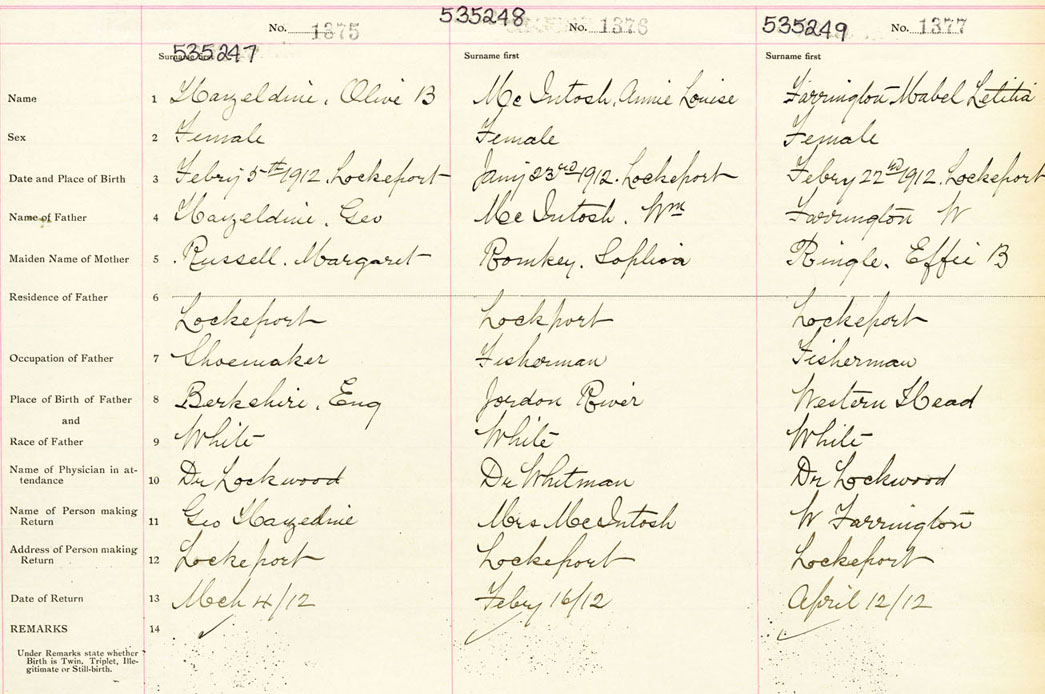 No. 1375 535248 No. 1376 535249 No. 1377
535247
Surname first Surname first Surname first
Name 1 Hayzeldine, Olive B McIntosh, Annie Louise Farrington Mabel Letitia
Sex 2 Female Female Female
Date and Place of Birth 3 Febry 5th 1912, Lockeport Jany 23rd 1912. Lockeport Febry 22nd 1912, Lockeport
Name of Father 4 Hayzeldine, Geo McIntosh, Wm Farrington W
Maiden Name of Mother 5 Russell, Margaret Romkey, Sophia Ringle, Effie B
Residence of Father 6
Lockeport Lockport Lockeport
Occupation of Father 7 Shoemaker Fisherman Fisherman
Place of Birth of Father 8 Berkshire, Eng Jordon River Western Head
and
Race of Father 9 White White White
Name of Physician in at-
tendance 10 Dr Lockwood Dr Whitman Dr Lockwood
Name of Person making
Return 11 Geo Mrs McIntosh W Farrington
Address of Person making
Return 12 Lockeport Lockeport Lockeport
Date of Return 13 Mch 4/12 Febry 16/12 April 12/12
REMARKS 14
Under Remarks state whether
Birth is Twin, Triplet, Ille-
gitimate or Still-birth.